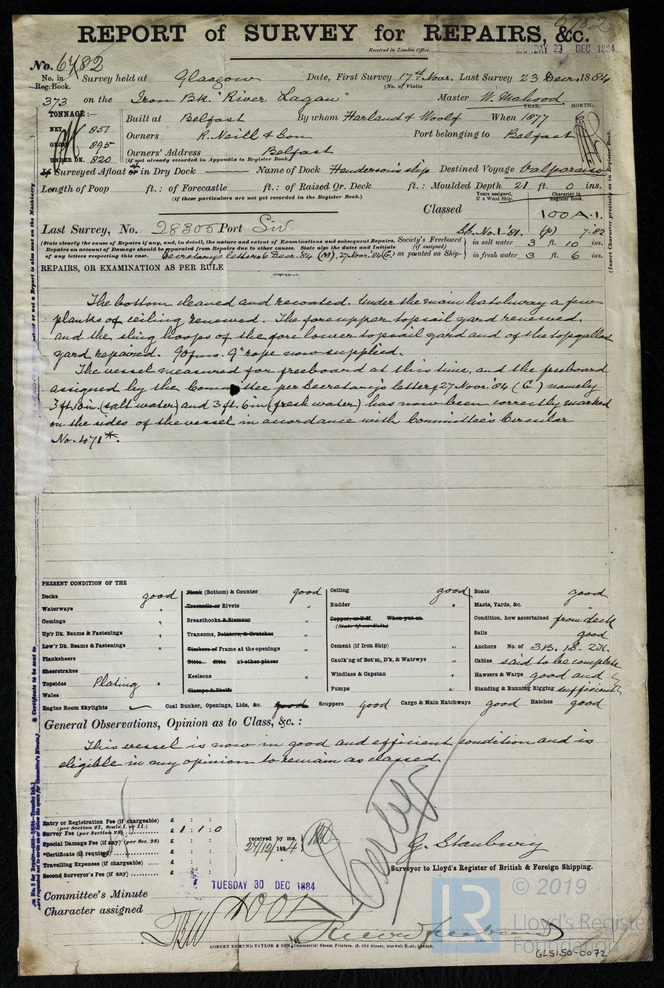 6782
REPORT of SURVEY for REPAIRS, &c.
Received in London Office,
MONDAY 29 DEC 1884
No. 6782
No. in Reg. Book. Survey held at Glasgow Date, First Survey 17th Nov. Last Survey 23 Decr. 1884
(No. of Visits
373 on the Iron Bk. "River Lagan" Master
TONNAGE:— YEAR. MONTH.
NET 851 Built at Belfast By whom Harland & Woolf When 1877 6
GROSS 895 Owners R. Neill & Son Port belonging to Belfast
UNDER DK. 820 Owners' Address Belfast
(if not already recorded in Appendix to Register Book)
If Surveyed Afloat or in Dry Dock — Name of Dock Henderson's slip Destined Voyage Valparaiso
Length of Poop ft.: of Forecastle ft.: of Raised Qr. Deck ft.: Moulded Depth 21 ft. 0 ins.
(if these particulars are not yet recorded in the Register Book).
Years assigned, if a Wood Ship. Character in Register Book.
Classed 100 A.1.
Last Survey, No. 28305 Port Liv. 7.82
(State clearly the cause of Repairs if any, and, in detail, the nature and extent of Examinations and subsequent Repairs. Society's Freeboard in salt water 3 ft. 10 ins.
Repairs on account of Damage should be separated from Repairs due to other causes. State also the dates and Initials (if assigned)
of any letters respecting this case. Secretary's letters 6 Decr. 84 (M), 27 Nov. 84 (C) as painted on Ship:- in fresh water 3 ft. 6 ins.
REPAIRS, OR EXAMINATION AS PER RULE
The bottom cleaned and recoated. Under the main hatchway a few
planks of ceiling renewed. The fore upper topsail yard renewed.
and the sling hoops of the fore lower topsail yard and of the topgallant
yard repaired. 90 fms. 9" rope now supplied.
The vessel measured for freeboard at this time, and the freeboard
assigned by the Committee per Secretary's letter, 27 Nov. 84 (C) namely
3 ft. 10 in. (salt water) and 3 ft. 6 in (fresh water) has now been correctly marked
on the sides of the vessel in accordance with Committee's Circular
No. 471*.
PRESENT CONDITION OF THE
Decks good
Waterways "
Comings "
Up'r Dk. Beams & Fastenings "
Low'r Dk. Beams & Fastenings "
Planksheers
Sheerstrakes
Topsides Plating "
Wales
Plank (Bottom) & Counter good
Treenails or Rivets "
Breasthooks & Stemson "
Transoms, Pointers, & Crutches "
Timbers of Frame at the openings "
Ditto. ditto At other places
Keelsons "
Clamps & Shelfs
Ceiling good
Rudder "
Copper, or Y.M. When put on.
(State if on Felt)
Cement (if Iron Ship) "
Caulk'ng of Bot'm, D'k, & Watrwys "
Windlass & Capstan "
Pumps "
Boats good
Masts, Yards, &c. "
Condition, how ascertained from deck
Sails good
Anchors No. of 3B. 1S. 2K.
Cables said to be complete
Hawsers & Warps good and
Standing & Running Rigging sufficient
Engine Room Skylights — Coal Bunker, Openings, Lids, &c. good Scuppers good Cargo & Main Hatchways good Hatches good
General Observations, Opinion as to Class, &c. :
This vessel is now in good and efficient condition and is
eligible in my opinion to remain as classed.
Entry or Registration Fee (if chargeable) £ : :
(per Section 27, Scale I. or II.)
Survey Fee (per Section 28) £ 1 : 1 : 0
Special Damage Fee (if any) (per Sec. 28) £ : :
*Certificate (if required) £ : :
Travelling Expenses (if chargeable) £ : :
Second Surveyor's Fee (if any) £ : :
received by me,
24/12/1884
Surveyor to Lloyd's Register of British & Foreign Shipping.
Committee's Minute TUESDAY 30 DEC 1884
Character assigned 100A1
ROBERT EDMUND TAYLOR & SON, Commercial Steam Printers, 19, Old Street, Goswell Road, London.
LR
© 2019
Lloyd's Register
Foundation
GLS150-0072